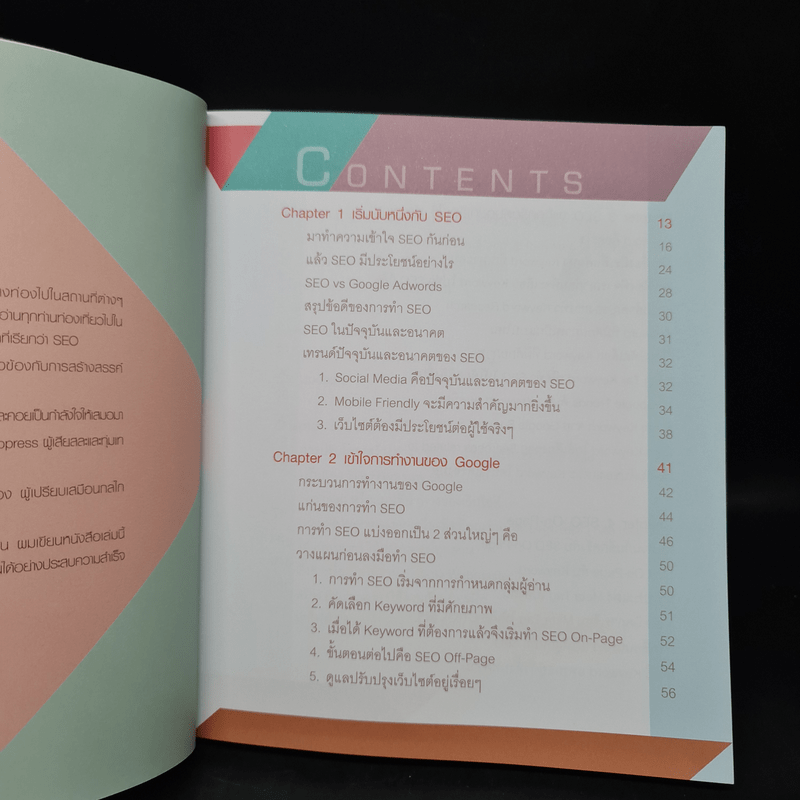 งท่องไปในสถานที่ต่างๆ
ว่านทุกท่านท่องเที่ยวไปใน
ที่เรียกว่า SEO
อข้องกับการสร้างสรรค์
ละคอยเป็นกำลังใจให้เสมอมา
opress ผู้เสียสละและทุ่มเท
อง ผู้เปรียบเสมือนกลไก
น ผมเขียนหนังสือเล่มนี้
ได้อย่างประสบความสำเร็จ
CONTENTS
Chapter 1 เริ่มนับหนึ่งกับ SEO 13
มาทำความเข้าใจ SEO กันก่อน 16
แล้ว SEO มีประโยชน์อย่างไร 24
SEO vs Google Adwords 28
สรุปข้อดีของการทำ SEO 30
SEO ในปัจจุบันและอนาคต 31
เทรนด์ปัจจุบันและอนาคตของ SEO 32
1. Social Media คือปัจจุบันและอนาคตของ SEO 32
2. Mobile Friendly จะมีความสำคัญมากยิ่งขึ้น 34
3. เว็บไซต์ต้องมีประโยชน์ต่อผู้ใช้จริงๆ 38
Chapter 2 เข้าใจการทำงานของ Google 41
กระบวนการทำงานของ Google 42
แก่นของการทำ SEO 44
การทำ SEO แบ่งออกเป็น 2 ส่วนใหญ่ๆ คือ 46
วางแผนก่อนลงมือทำ SEO 50
1. การทำ SEO เริ่มจากการกำหนดกลุ่มผู้อ่าน 50
2. คัดเลือก Keyword ที่มีศักยภาพ 51
3. เมื่อได้ Keyword ที่ต้องการแล้วจึงเริ่มทำ SEO On-Page 52
4. ขั้นตอนต่อไปคือ SEO Off-Page 54
5. ดูแลปรับปรุงเว็บไซต์อยู่เรื่อยๆ 56